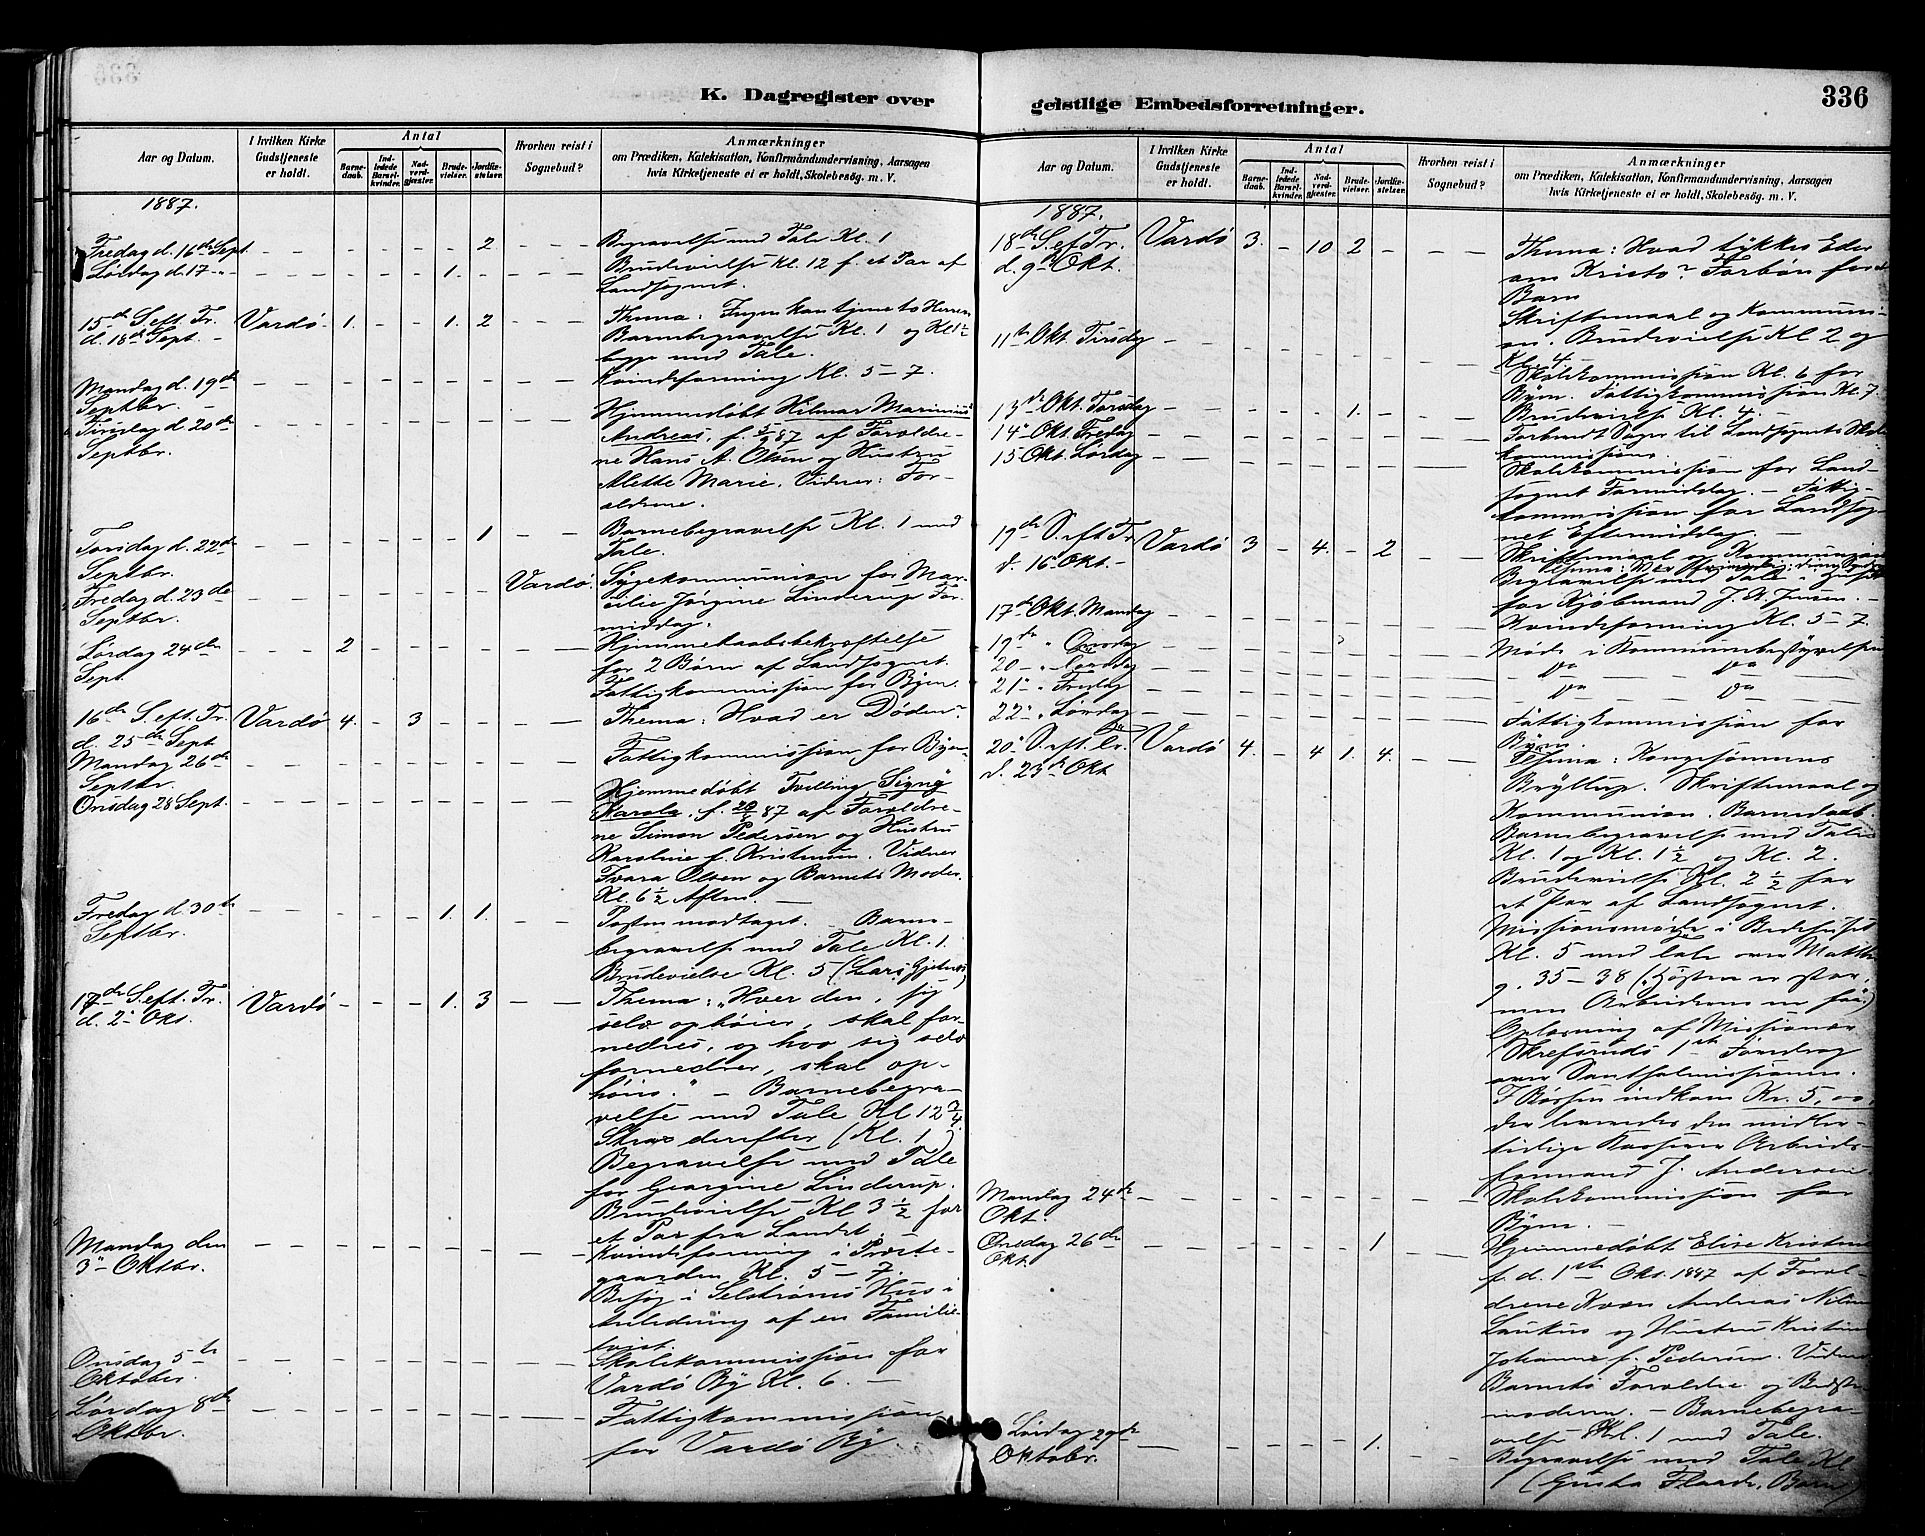 K. Dagregister over
geistlige Embedsforretninger.
336
Aar og Datum.
I hvilken Kirke Gudstjeneste er holdt.
Antal
Barnedaab.
Indledede Barselkvinder.
Nadverdgjester.
Brudevielser.
Jordfæstelser.
Hvorhen reist i Sognebud?
Anmærkninger
om Prædiken, Katekisation, Konfirmandundervisning, Aarsagen
hvis Kirketjeneste ei er holdt, Skolebesøg. m. V.
1887.
Fredag d. 16de Sept. - - - - - 2. - - - Begravelse med Tale Kl. 1
Lørdag d. 17 - - - - - 1. - - - - Brudevielse Kl. 12 f. et Par af
Landsognet.
15de S. eft. Tr. Vardø. 1. - - 1. 2 - - - Thema: Ingen kan tjene to Herrer
d. 18de Sept. - Barnebegravelse Kl. 1 og Kl 1½
begge med Tale.
Mandag d. 19de - - - - - - - Kvindeforening Kl. 5-7.
Septbr. -
Tirsdag d. 20de - - - - - - - Hjemmedøbt Hilmar Marinius
Septbr. Andreas, f. 5/9 87 af Forældre-
ne Hans A. Olsen og Hustru
Mette Marie. Vidner: For-
ældrene.
Torsdag d. 22de - - - - - 1 - - Barnebegravelse Kl. 1 med
Septbr. Tale.
Fredag d. 23de Vardø. Sygekommunion for
Septbr. Jørgine Linderup For-
middag.
Lørdag 24de - - - 2 - - - - - Hjemmedaabsbekræftelse
Sept. for 2 Børn af Landsognet.
Fattigkommission for Byen.
16de S. eft. Tr. Vardø 4. - 3 - - - - Thema: Hvad er Døden?
d. 25de Sept
Mandag 26de - - - - - - - Fattigkommission for Byen.
Septbr.
Onsdag 28 Sept. - - - - - - - Hjemmedøbt Tvilling Signy
Karola, f. 87 af Forældre-
ne Simon Pedersen og Hustru
Karoline f. Kristensen. Vidner
Olsen og Barnets Moder.
Kl. 6½ Aften. -
Fredag d. 30te - - - - 1. 1. - - Posten modtaget. Barne-
Septbr. begravelse med Tale Kl. 1.
Brudevielse Kl. 5 (Lars
17de S. eft. Tr. Vardø - - - 1. 3 - - Thema: "Hver den, sig
d. 2den Okt. selv ophøier, skal for-
nedres, og hvo sig selv
fornedrer, skal op-
høies." - Barnebegra-
velse med Tale Kl 12¾
Strax derefter (Kl. 1)
Begravelse med Tale
for Georgine Linderup.
Brudevielse Kl 3½ for
et Par fra Landet. -
Mandag den - - - - - - - Kvindeforening i Præste-
3die Oktbr. gaarden Kl. 5-7.
Besøg i Selstrøms Hus i
Anledning af en Familie-
Onsdag 5te - - - - - - - Skolekommission for
Oktober. Vardø By Kl. 6. -
Lørdag 8de - - - - - - - Fattigkommission
Oktbr. for Vardø By
Aar og Datum.
I hvilken Kirke Gudstjeneste er holdt.
Antal
Barnedaab.
Indledede Barselkvinder.
Nadverdgjester.
Brudevielser.
Jordfæstelser.
Hvorhen reist i Sognebud?
Anmærkninger
om Prædiken, Katekisation, Konfirmandundervisning, Aarsagen
hvis Kirketjeneste ei er holdt, Skolebesøg. m. V.
1887.
18de S. ef Tr. Vardø 3. - 10 2 - - - Thema: Hvad tykkes Eder
d. 9de Okt. om Kristo? Forbøn for
Barn
Skriftemaal og Kommuni-
on. Brudevielse Kl 2 og
Kl. 4
11te Okt. Tirsdag - - - - - - - Skolekommission Kl. 6 for
Byen. Fattigkommission Kl. 7.
13de Okt. Torsdag - - - - 1. - - Brudevielse Kl. 4.
14de Okt. Fredag - - - - - - - Forberedt Sager til Landsognets Skole
kommission.
15 Okt. Lørdag - - - - - - - Skolekommission for Land-
sognet Formiddag. - Fattig-
kommission for Landsog-
net Eftermiddag. -
19de S. eft Tr. Vardø 3 - 4. - 2 - - Skriftemaal og Kommunion
d. 16 Okt. - Begravelse med Tale i Huset
for Kjøbmand J. A. Jensen. -
17de Okt. Mandag - - - - - - - Kvindeforening Kl. 5-7
19de " Onsdag - - - - - - - Møde i Kommunebestyrelsen
20 - " Torsdag - - - - - - - Do Do
21 " Fredag - - - - - - - Do Do
22 " Lørdag - - - - - - - Fattigkommission for
Byen.
20de S. eft. Tr. Vardø 4. - 4 1. 4. - - Thema: Kongesønnens
d. 23de Okt Bryllup. Skriftemaal og
Kommunion. Barnedaab.
Barnebegravelse med Tale
Kl. 1 og Kl. 1½ og Kl. 2.
Brudevielse Kl. 2½ for
et Par af Landsognet.
Missionsmøde i Bedehuset
Kl. 5 med Tale over Matth
9. 35-38 (Høsten er stor,
men Arbeiderne ere faa.)
Oplæsning af Missionær
Skrefsruds 1ste Foredrag
over Santhalmissionen.
I Bøssen indkom Kr. 5,00,
der leveredes den midler-
tidige Kasserer Arbeids-
formand J. Andersen.
Mandag 24de - - - - - - - Skolekommission for
Okt. Byen. -
Onsdag 26de - - - - - 1. - - Hjemmedøbt Elise Kristine
Okt. f. d. 1ste Okt. 1887 af Foræl-
drene Kvæn Andreas Nilsen
Laukus og Hustru Kristine
Johanne f. Pedersen. Vidner
Barnets Forældre og Bedste
moderen. - Barnebegra-
velse Kl. 1 med Tale.
Lørdag 29de - - - - - 1. - - Begravelse med Tale Kl
Oktober. ( Barn)